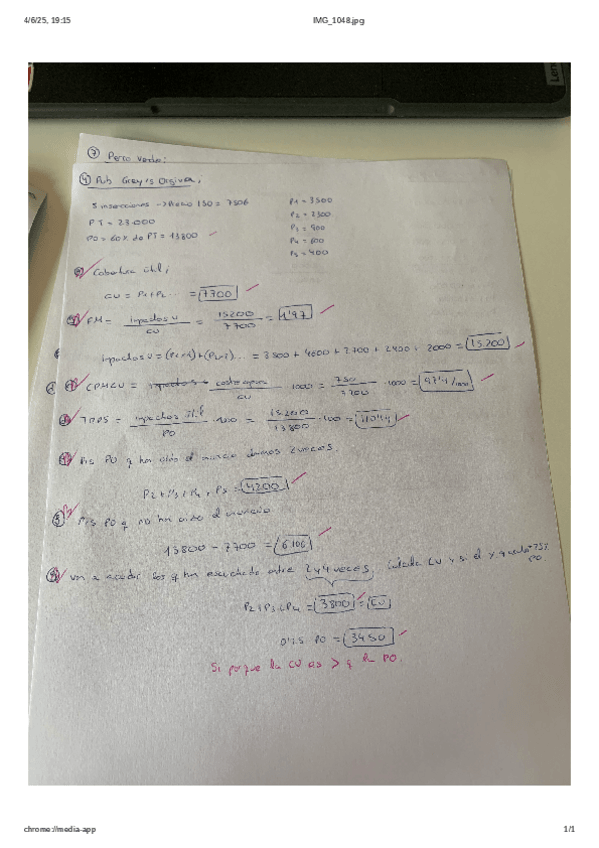 4/6/25, 19:15
IMG_1048.jpg
Leno
7 Perro verde:
4 Pub Grey's Orgiva:
5 inserciones → Precio 150 = 750€
PT = 23.000
PO = 60% de PT = 13800
P1 = 3500
P2 = 2300
P3 = 900
P4 = 600
P5 = 400
Cobertura útil;
CU = P1+P2... = 7700
FM = impactos U / CU = 15200 / 7700 = 1'97
impactos U = (P1·1)+(P2·2)... = 3500 + 4600 + 2700 + 2400 + 2000 = 15.200
CPMCU = coste / CU · 1000 = 750 / 7700 · 1000 = 97'4 /
= impactos útil / PO · 100 = 15.200 / 13800 · 100 =
PO q han oído el anuncio 2 veces.
P2+P3+P4+P5 = 4200
PO q no han oído el anuncio
13800 - 7700 = 6.100
Van a acudir los q han escuchado entre 2 y 4 veces. Calcula CU y si el
PO.
P2+P3+P4 = 3800 = CU
PO = 3450
Si porque la CU es > q PO.
chrome://media-app
1/1